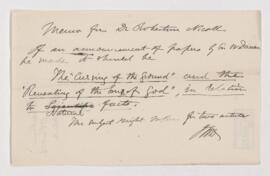 Memo for Dr Robertson Nicoll
If an announcement of papers by Sir W Dawson
be made it should be
The "Cursing of the Ground" and the
"Revealing of the Sons of God", in relation
to Scientific facts.
Natural
The subject might for two articles